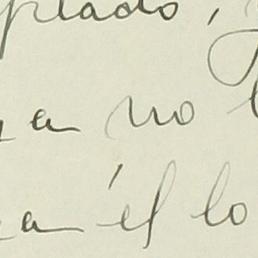 plado,
a no
a él lo